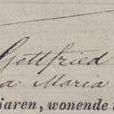 Gottfried
a Maria
jaren, wonende